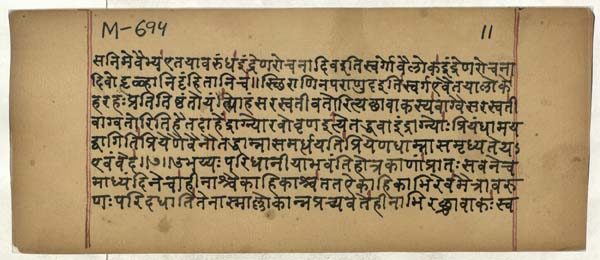 M-694 11
सनिमेवैभ्य एतयावरुंध इंद्रेण रोचना दिव इति स्वर्गो वै लोक इंद्रेण रोचना
दिवो दृळ्हानि दृंहितानि च॥ स्थिराणि न पराणुद इति स्वर्ग एवैतया लोके
हरहः प्रतितिष्ठंतो यंत्याहं सरस्वतीवतोरित्यछावाकस्य वाग्वै सरस्वती
वाग्वतोरिति हैतदाहेंद्राग्न्योरवो वृण इत्येतद्ध वा इंद्राग्न्योः प्रियं धाम य
द्वागिति प्रियेणैवैनौ तद्धाम्ना समर्धयति प्रियेण धाम्ना समृध्यते य
एवं वेद॥७॥ उभय्यः परिधानीया भवंति होत्रकाणां प्रातःसवने च
माध्यंदिने चाहीनाश्चैकाहिकाश्च तत ऐकाहिकाभिरेव मैत्रावरु
णः परिदधाति तेनास्माल्लोकान्न प्रच्यवतेहीनाभिरछावाकः स्व